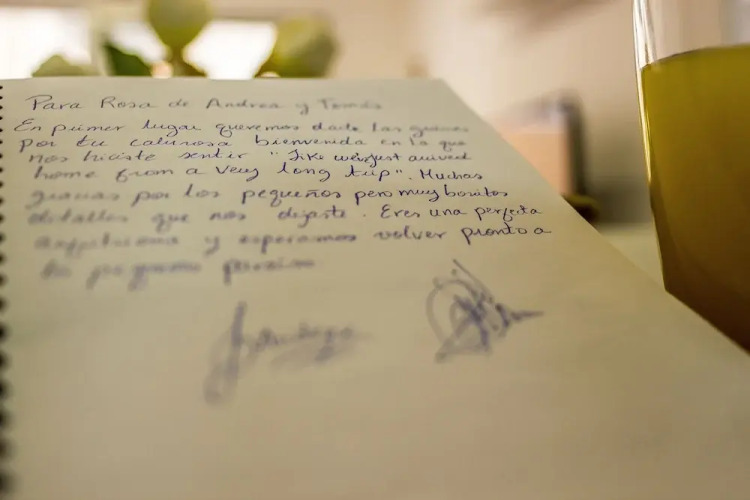 Para Rosa de Andrea y Tomás
En primer lugar queremos darte las gracias
por tu calurosa bienvenida en la que
nos hiciste sentir "like we just arrived
home from a very long trip". Muchas
gracias por los pequeños pero muy bonitos
detalles que nos dejaste. Eres una perfecta
anfitriona y esperamos volver pronto a
tu pequeño paraíso